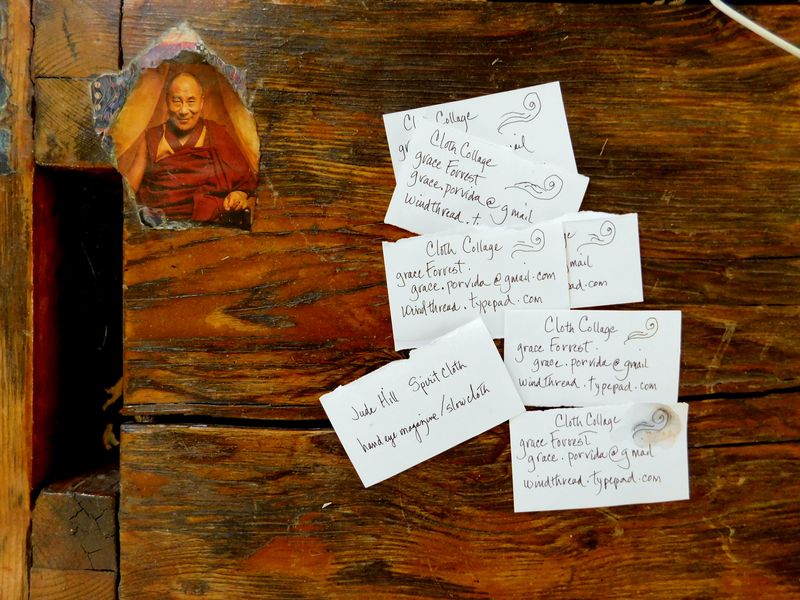 Cl Collage
gr
mail
Cloth Collage
grace Forrest
grace.porvida@gmail
windthread.t
Cloth Collage
grace Forrest.
grace.porvida@gmail.com
windthread.typepad.com
mail
ad.com
Cloth Collage
grace Forrest.
grace.porvida@gmail
windthread.typepad.com
Jude Hill Spirit Cloth
hand eye magazine/slowcloth
Cloth Collage
grace Forrest
grace.porvida@gmail
windthread.typepad.com